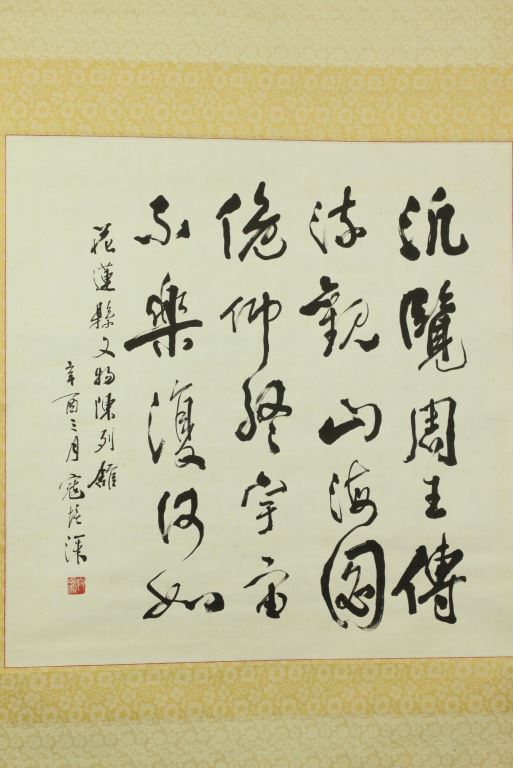 汎覽周王傳
流觀山海圖
俛仰終宇宙
不樂復何如
花蓮縣文物陳列館
辛酉三月寇培深